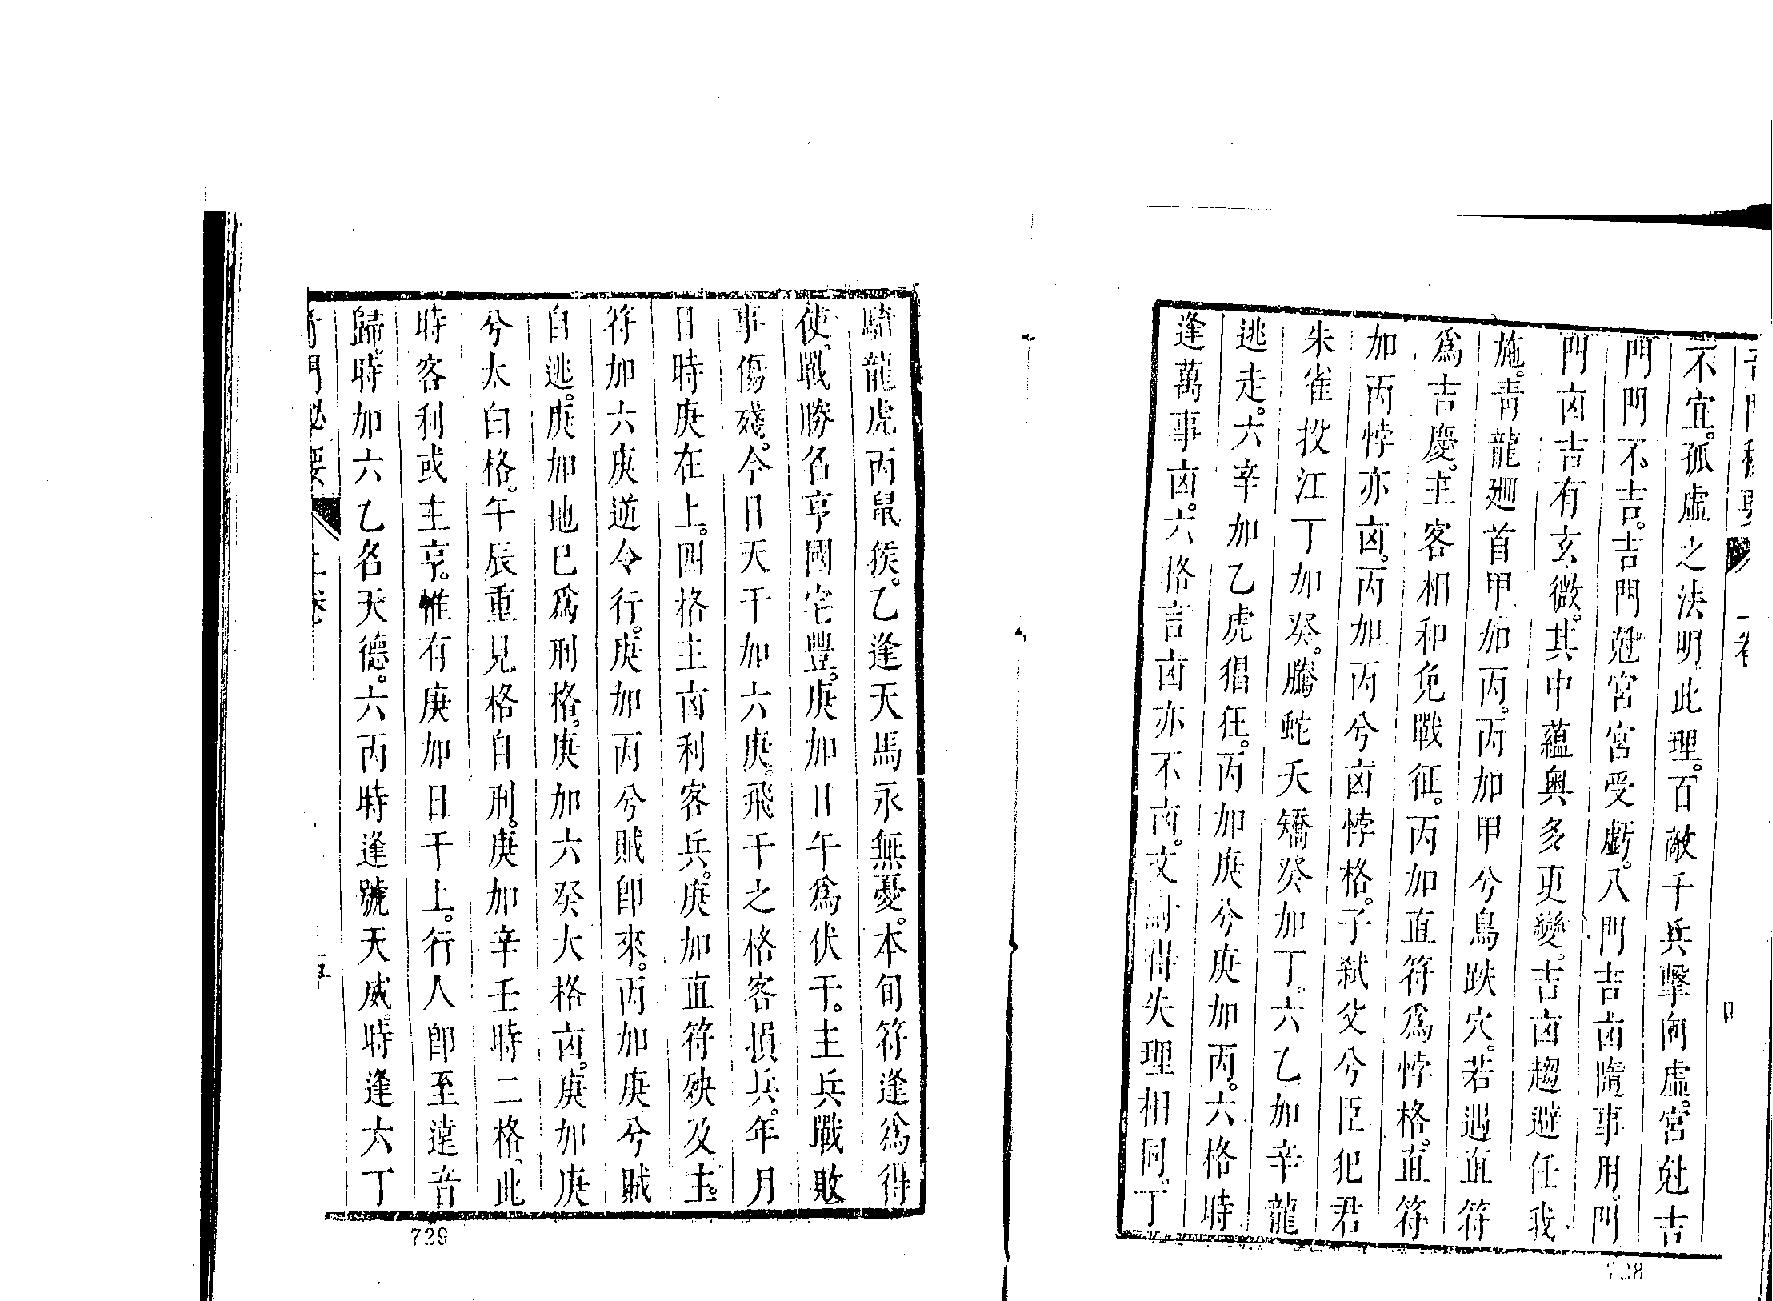 不宜。孤虛之法明此理。百敵千兵擊向虛。宮尅吉
門門不吉。吉門尅宮宮受虧。八門吉凶隨事用。門
門凶吉有玄微。其中蘊奧多更變。吉凶趨避任我
施。青龍廻首甲加丙。丙加甲兮鳥跌穴。若遇直符
爲吉慶。主客相和免戰征。丙加直符爲悖格。直符
加丙悖亦凶。丙加丙兮凶悖格。子弒父兮臣犯君
朱雀投江丁加癸。騰蛇夭矯癸加丁。六乙加辛龍
逃走。六辛加乙虎猖狂。丙加庚兮庚加丙。六格時
逢萬事凶。六格言凶亦不凶。文 得失理相同。丁
728
騎龍虎丙鼠猴。乙逢天馬永無憂。本旬符逢爲得
使。戰勝名亨國宅豐。庚加日午爲伏干。主兵戰敗
事傷殘。今日天干加六庚。飛干之格客損兵。年月
日時庚在上。四格主凶利客兵。庚加直符殃及主。
符加六庚逆令行。庚加丙兮賊即來。丙加庚兮賊
自逃。庚加地巳爲刑格。庚加六癸大格凶。庚加庚
兮太白格。午辰重見格自刑。庚加辛壬時二格。此
時客利或主亨。惟有庚加日干上。行人即至遠音
歸。時加六乙名天德。六丙時逢號天威。時逢六丁
奇門秘要 上卷
729